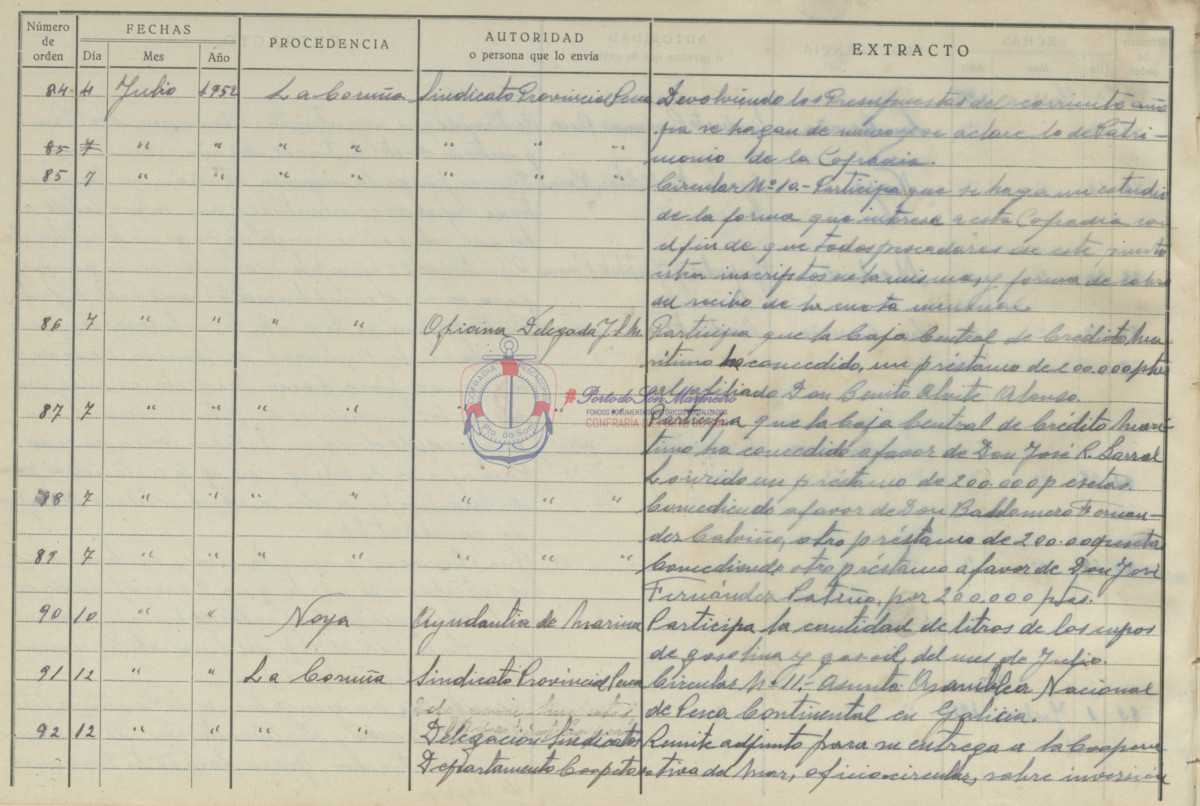 Número de orden FECHAS PROCEDENCIA AUTORIDAD o persona que lo envía EXTRACTO
Día Mes Año
84 4 Julio 1952 La Coruña Sindicato Provincial Pesca Devolviendo los Presupuestos del corriente año
pa se hagan de nuevo y se aclare lo de Patri-
85 7 " " " " " " " monio de la Cofradia.
85 7 " " " " " " " Circular Nº 10.- Participa que se haga un estudio
de la forma que interese a esta Cofradia co
el fin de que todos pescadores de este puerto
esten inscriptos en la misma, y forma de cobro
del recibo de la cuota mensual
86 7 " " " " Oficina Delegada Participa que la Caja Central de Crédito Ma
ritimo ha concedido, un préstamo de 200.000 ptas
afiliado Don Benito Alonso.
87 7 " " " " " " Participa que la Caja Central de Crédito Marí-
timo ha concedido a favor de Don José R.
un préstamo de 200.000 pesetas.
88 7 " " " " " " " Concediendo a favor de Don Baldomero Fernan-
dez Calviño, otro préstamo de 200.000 pesetas
89 7 " " " " " " " Concediendo otro préstamo a favor de Don José
Fernández Patiño, por 200.000 ptas.
90 10 " " Noya Ayudantia de Marina Participa la cantidad de litros de los cupos
de gasolina y gas-oil, del mes de Julio.
91 12 " " La Coruña Sindicato Provincial Pesca Circular Nº 11.- Asunto: Asamblea Nacional
de Pesca Continental en Galicia.
92 12 " " " " Delegación Sindicatos Remite adjunto para su entrega a la Coopera
Departamento Cooperativa del Mar, oficio circular, sobre inversión
COFRADIA PESCADORES
Pto. do Son
#Porto do Son Marineiro
FONDOS DOCUMENTAIS HISTÓRICOS DIXITALIZADOS
CONFRARÍA DE PORTO DO SON